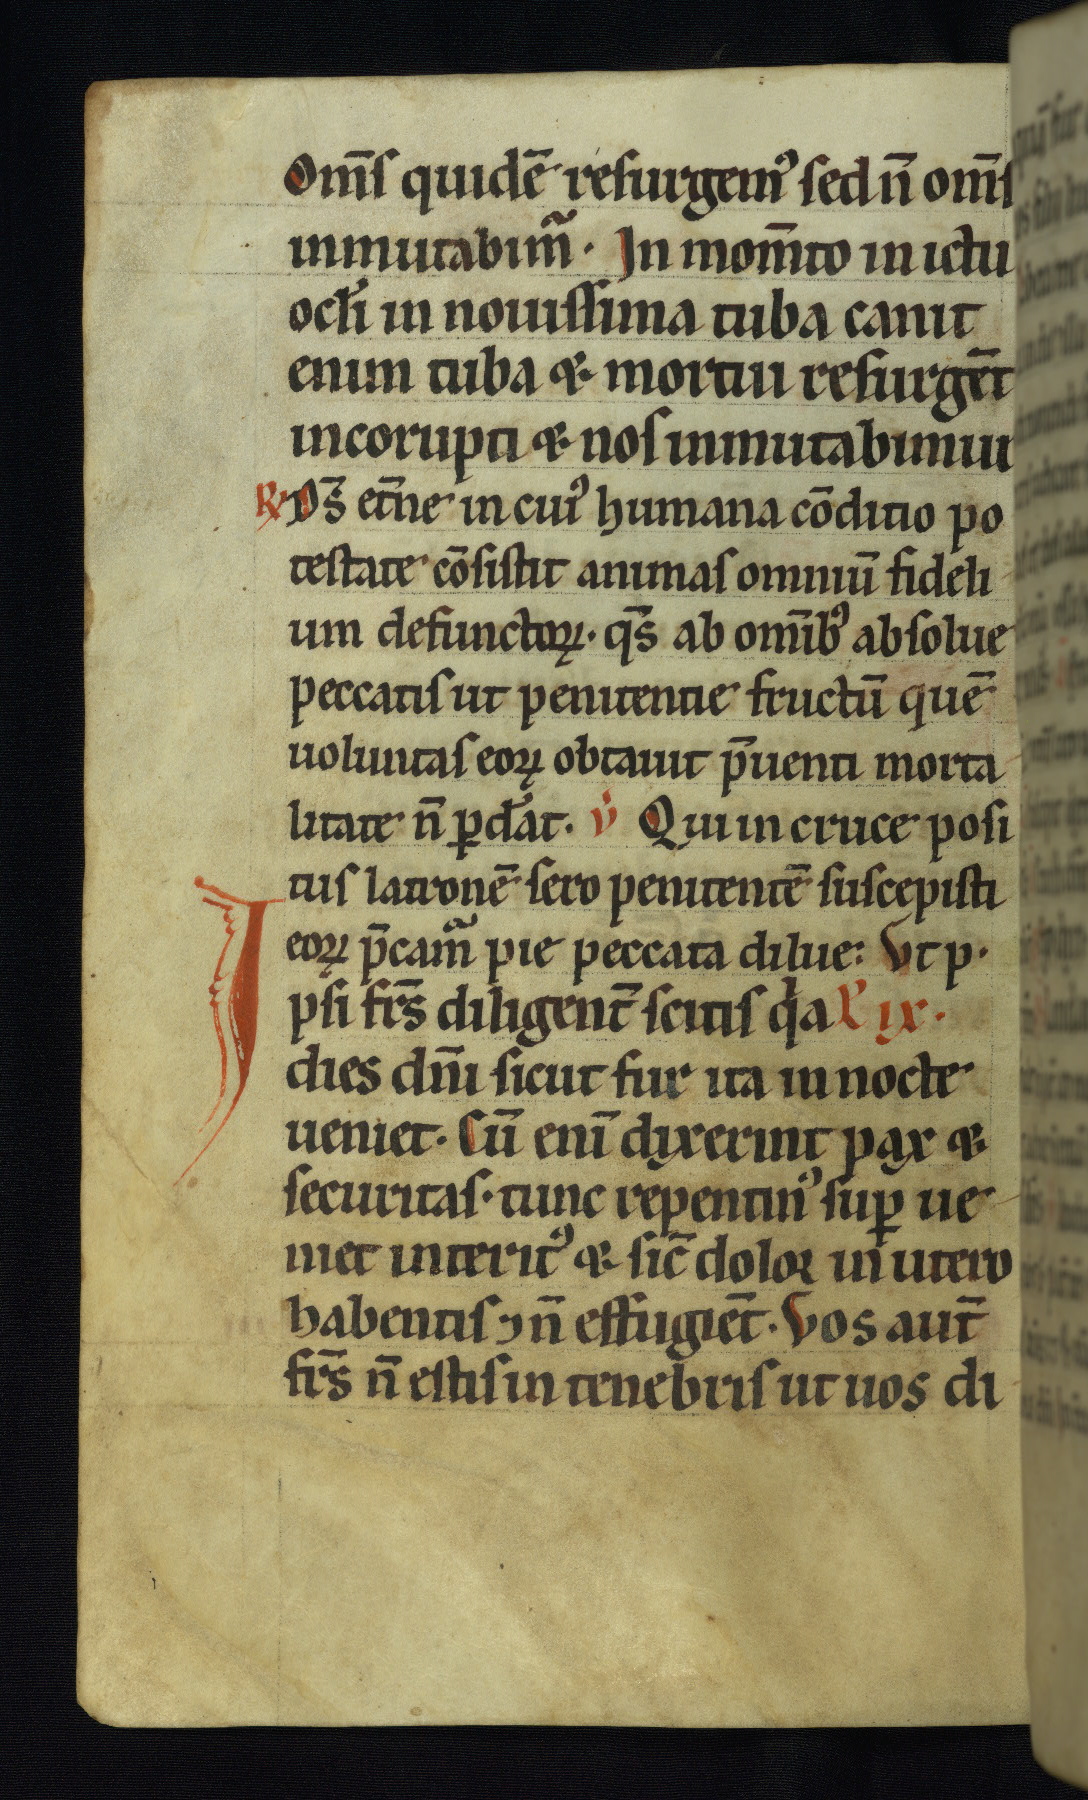 Om̅s quidē resurgemꝰ sed n̅ om̅s
inmutabim̃. In mom̅to in ictu
ocl̅i in nouissima tuba canit
enim tuba ⁊ mortui resurgēt
incorupti ⁊ nos inmutabimur
℟ Ds̅ et̅ne in cuiꝰ humana cōditio po
testate cōsistit animas omniū fideli
um defunctoꝝ. qs̅ ab omībꝰ absolue
peccatis ut penitentie fructū quē
uoluntas eoꝝ obtauit p̅uenti morta
litate n̅ ꝑdat. v̇ Qui in cruce posi
tus latronē sero penitentē suscepisti
eoꝝ p̅cam̃ pie peccata dilue: Vt p.
Ipsi fr̅s diligent̅ scitis qͥa ℟ ix.
dies dn̅i sicut fur ita in nocte
ueniet. Cū enī dixerint pax ⁊
securitas. tunc repentinꝰ suꝑ ue
niet interitꝰ ⁊ sic̅ dolor in utero
habentis ⁊ n̅ effugiēt. Vos aut̅
fr̅s n̅ estis in tenebris ut uos di